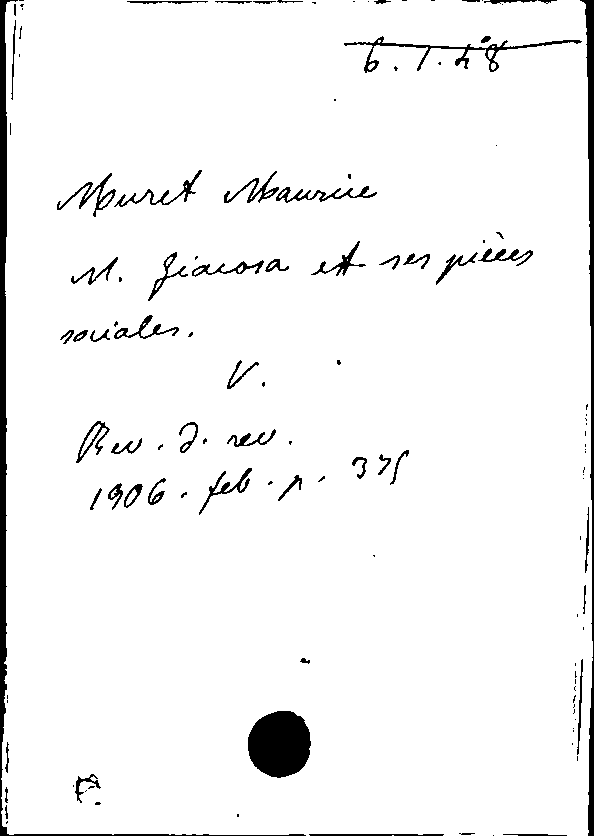 6.1.48
Muret Maurice
M. Giacosa et ses pièces
sociales.
V.
Rev. d. rev.
1906. feb. p. 375